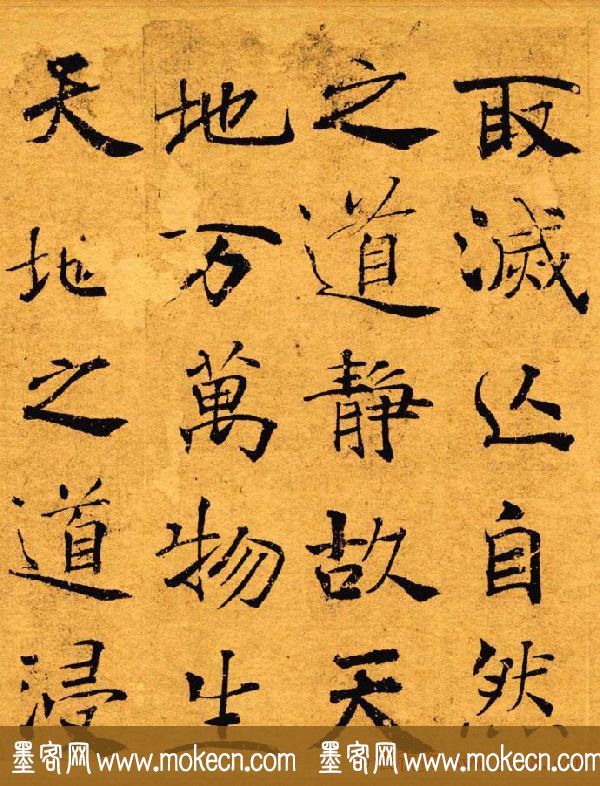 取滅亾自然
之道靜故天
地万萬物生
天地之道浸
墨客网 www.mokecn.com 墨客网 www.mokecn.com